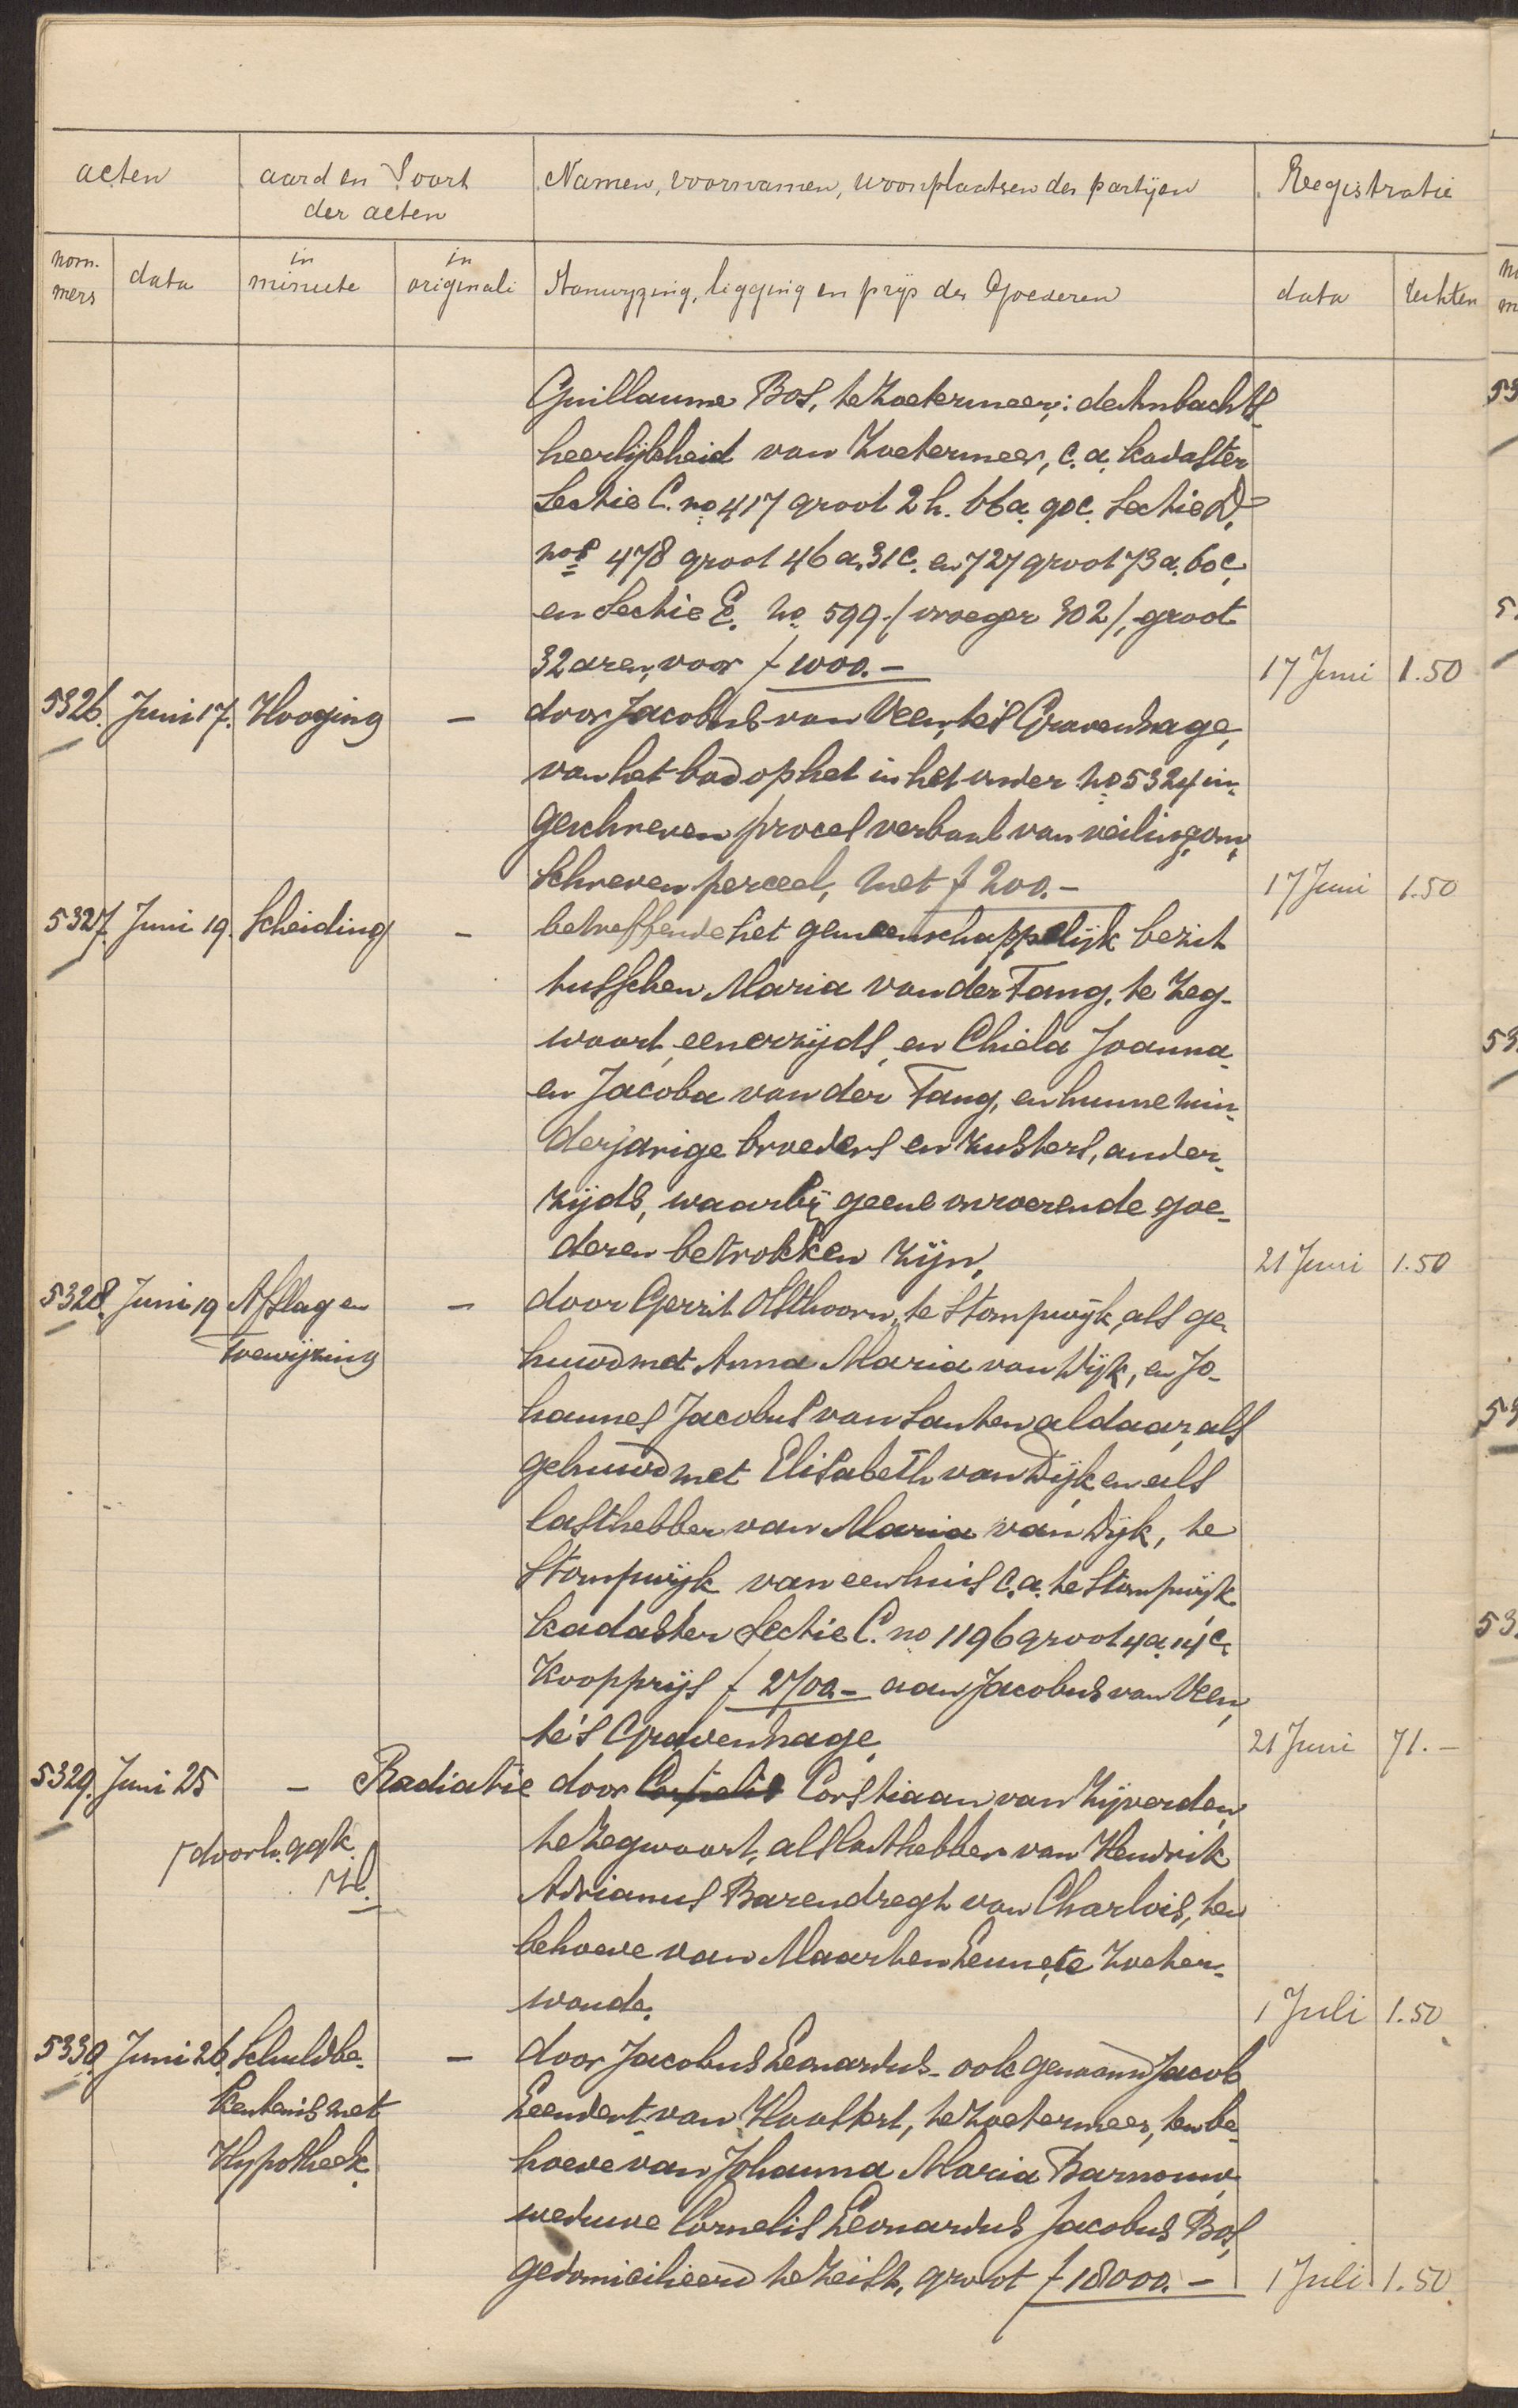 acten
aard en Soort
der acten
Namen, voornamen, woonplaatsen der partijen
Registratie
nom-
mers
data
in
minute
in
originali
Aanwyzing, ligging en prijs der Goederen
data
rechten
Guillaume Bos, te Zoetermeer: de Ambachts-
heerlijkheid van Zoetermeer, c.a. kadaster
Sectie C. no 417 groot 2 h. 66 a. 90 c. Sectie D.
nos 478 groot 46 a. 31 c. en 727 groot 73 a. 60 c.
en Sectie E. no. 599 / vroeger 302 /, groot
32 aren, voor f 1000.-
17 Juni 1.50
5326. Juni 17. Hooging - door Jacobus van Veen, te 's Gravenhage,
van het bod op het in het onder no 5324 in-
geschreven proces verbaal van veiling om-
schreven perceel, met f 200.-
17 Juni 1.50
5327. Juni 19. Scheiding - betreffende het gemeenschappelijk bezit
tusschen Maria van der Tang, te Zeg-
waart, eenerzijds, en Chiela Joanna
en Jacoba van der Tang, en hunne min-
derjarige broeders en zusters, ander-
zijds, waarbij geene onroerende goe-
deren betrokken zijn.
21 Juni 1.50
5328. Juni 19 Afslag en - door Gerrit Olsthoorn, te Stompwijk, als ge-
Toewijzing
huwd met Anna Maria van Dijk, en Jo-
hannes Jacobus van Santen aldaar, als
gehuwd met Elisabeth van Dijk en als
lasthebber van Maria van Dijk, te
Stompwijk van een huis c.a. te Stompwijk
kadaster Sectie C. no 1196 groot 4 a. 14 c.
Koopprijs f 2700.- aan Jacobus van Veen,
te 's Gravenhage.
21 Juni 71.-
5329. Juni 25 - Radiatie door Cornelis Corstiaan van Zijverden,
te Zegwaart, als lasthebber van Hendrik
doorh. ggk.
Adrianus Barendregt van Charlois, ten
behoeve van Maarten Leune, te Zoeter-
woude.
1 Juli 1.50
5330. Juni 26. Schuldbe- - door Jacobus Leonardus - ook genaamd Jacob
kentenis met
Leendert - van Hoolfert, te Zoetermeer, ten be-
Hypotheek.
hoeve van Johanna Maria Barnouw,
weduwe Cornelis Leonardus Jacobus Bos,
gedomicilieerd te Zeist, groot f 18000.-
1 Juli 1.50